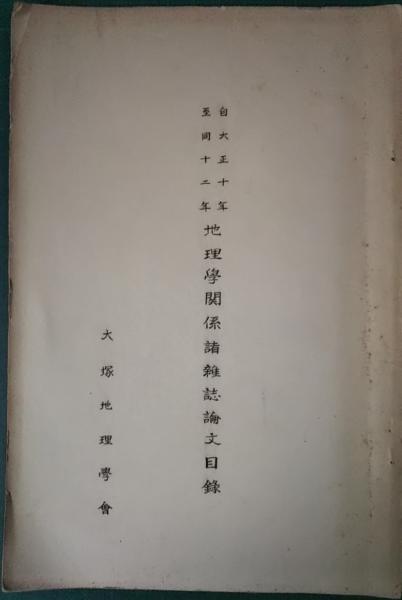 自大正十年
至同十二年
地理學關係諸雜誌論文目錄
大塚地理學會